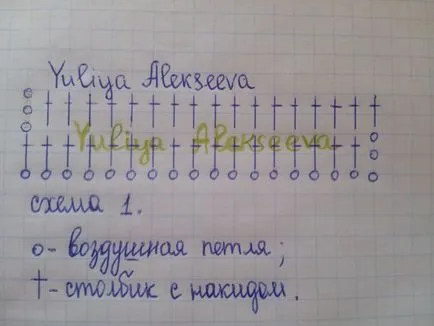 Yuliya Alekseeva
Yuliya Alekseeva
схема 1.
о- воздушная петля;
†- столбик с накидом.